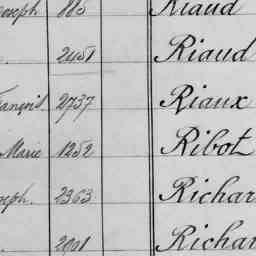 oseph 885 Riaud
2451 Riaud
rançois 2737 Riaux
Marie 1252 Ribot
seph. 2363 Richar
2901 Richar